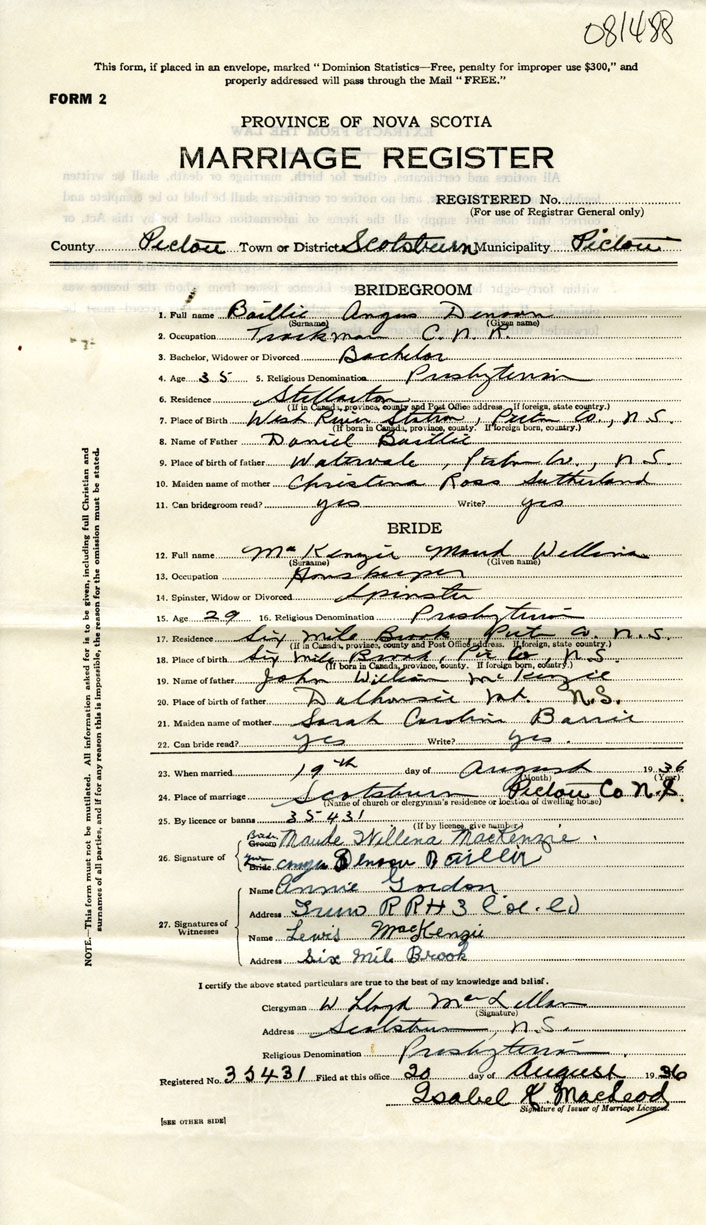 081488
This form, if placed in an envelope, marked "Dominion Statistics—Free, penalty for improper use $300," and
properly addressed will pass through the Mail "FREE."
FORM 2
PROVINCE OF NOVA SCOTIA
MARRIAGE REGISTER
REGISTERED No.
(For use of Registrar General only)
County Pictou Town or District Scotsburn Municipality Pictou
BRIDEGROOM
1. Full name Baillie Angus Denoon
(Surname) (Given name)
2. Occupation Trackman C. N. R.
3. Bachelor, Widower or Divorced Bachelor
4. Age 35 5. Religious Denomination Presbyterian
6. Residence Stellarton
(If in Canada, province, county and Post Office address. If foreign, state country.)
7. Place of Birth West River Station, Pictou Co., N.S.
(If born in Canada, province, county. If foreign born, country.)
8. Name of Father Daniel Baillie
9. Place of birth of father Watervale, Pictou Co., N.S.
10. Maiden name of mother Christina Ross Sutherland
11. Can bridegroom read? yes Write? yes
BRIDE
12. Full name McKenzie Maud Willena
(Surname) (Given name)
13. Occupation Housekeeper
14. Spinster, Widow or Divorced Spinster
15. Age 29 16. Religious Denomination Presbyterian
17. Residence Six Mile Brook, Pict Co. N.S.
(If in Canada, province, county and Post Office address. If foreign, state country.)
18. Place of birth Six Mile Brook, Pic Co, N.S.
(If born in Canada, province, county. If foreign born, country.)
19. Name of father John William McKenzie
20. Place of birth of father Dalhousie Mt. N.S.
21. Maiden name of mother Sarah Caroline Barrie
22. Can bride read? yes Write? yes.
23. When married 19th day of August 1936
(Month) (Year)
24. Place of marriage Scotsburn Pictou Co N.S.
(Name of church or clergyman's residence or location of dwelling house)
25. By licence or banns 35431
(If by licence, give number)
Bride Groom Maude Willena MacKenzie.
26. Signature of
Bride Angus Denoon Baillie
Name Annie Gordon
Address Truro RR# 3 Col. Co
27. Signatures of Witnesses
Name Lewis MacKenzie
Address Six Mile Brook
I certify the above stated particulars are true to the best of my knowledge and belief.
Clergyman W Lloyd MacLellan
(Signature)
Address Scotsburn, N.S.
Religious Denomination Presbyterian
Registered No. 35431 Filed at this office 20 day of August 1936
Isabel K. MacLeod
Signature of Issuer of Marriage Licences.
[SEE OTHER SIDE]
NOTE.—This form must not be mutilated. All information asked for is to be given, including full Christian and
surnames of all parties, and if for any reason this is impossible, the reason for the omission must be stated.